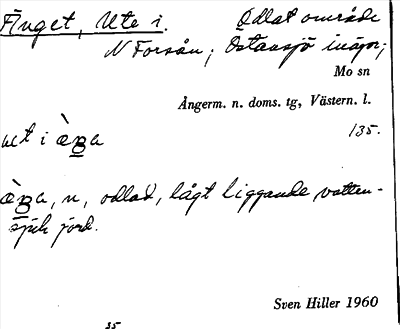 Änget, Ute i. Odlat område
N Forsån; Östansjö inägor;
Mo sn
Ångerm. n. doms. tg, Västern. l.
ut i 135.
n, odlad, lågt liggande vatten-
sjuk jord.
Sven Hiller 1960